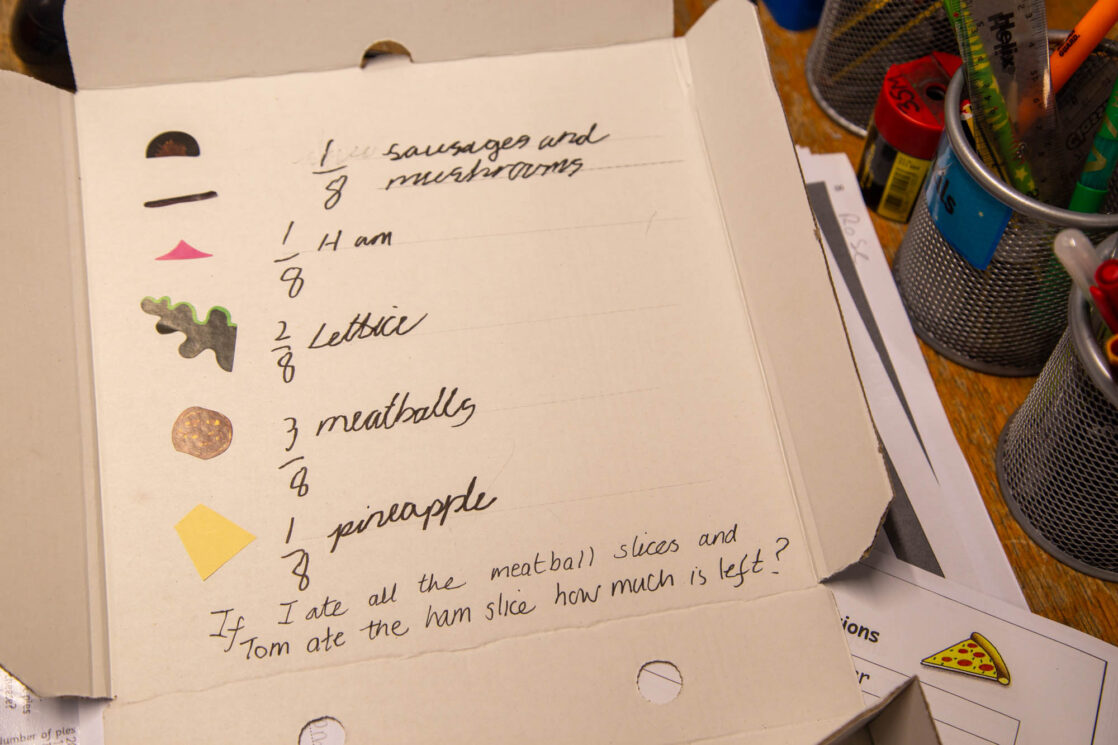 1/8 sausages and
mushrooms
1/8 Ham
2/8 Lettice
3/8 meatballs
1/8 pineapple
If I ate all the meatball slices and
Tom ate the ham slice how much is left?
Helix
Rose
ions